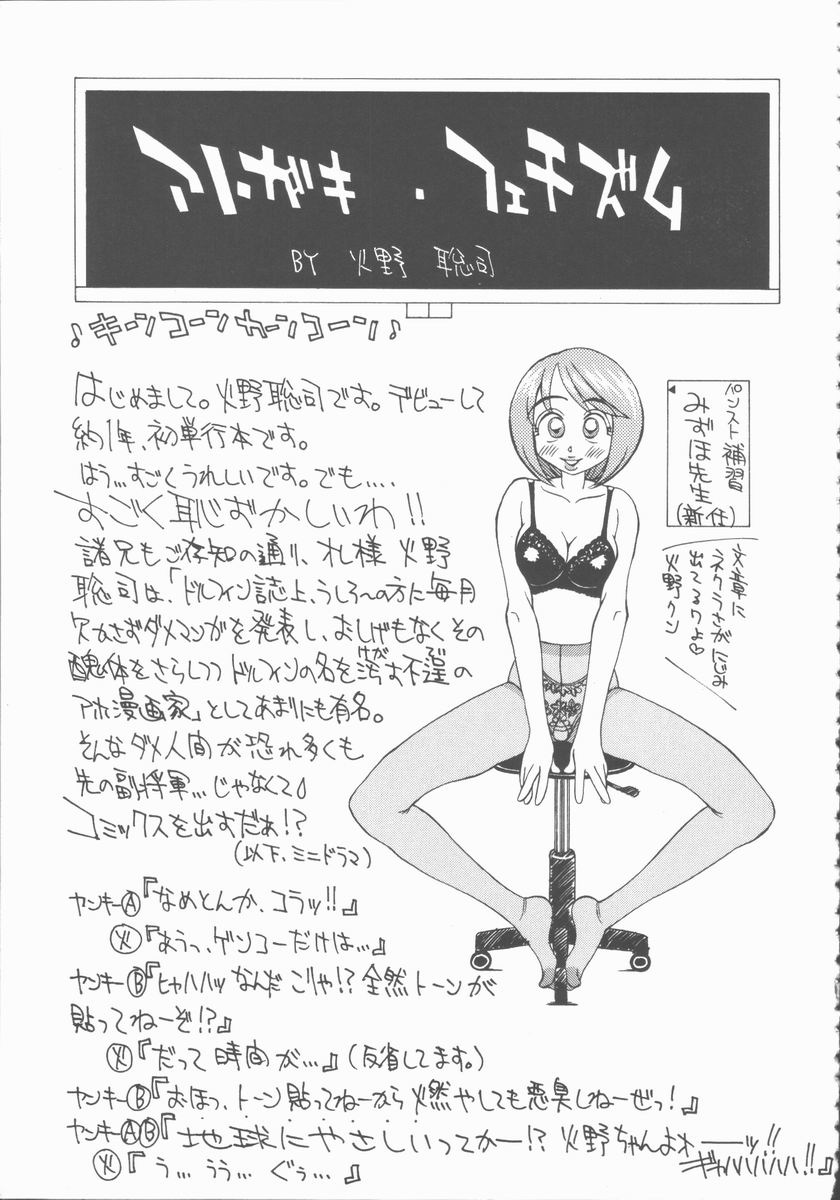 BY 火野 聡司
♪キーンコーンカーンコーン♪
はじめまして。火野聡司です。デビューして
約1年、初単行本です。
はう…すごくうれしいです。でも‥‥
すごく恥ずかしいわ!!
諸兄もご存知の通り、オレ様 火野
聡司は、「ドルフィン誌上、うしろーの方に毎月
欠かさずダメマンガを発表し、おしげもなくその
醜体をさらしつつドルフィンの名を汚す不逞の
けが
アホ漫画家」としてあまりにも有名。
そんなダメ人間が恐れ多くも
先の副将軍…じゃなくて♪
コミックスを出すだぁ!?
(以下、ミニドラマ)
ヤンキーⒶ『なめとんか、コラッ!!』
㊋『あうっ、ゲンコーだけは…』
ヤンキーⒷ『ヒャハハッ なんだ こりゃ!? 全然トーンが
貼ってねーぞ!?』
㊋『だって 時間が…』(反省してます。)
ヤンキーⒷ『おほっ、トーン貼ってねーから 燃やしても悪臭しねーぜっ!』
ヤンキーⒶⒷ『地球にやさしいってかー!? 火野ちゃんよォーーッ!!
ギャハハハハ!!』
㊋『う… うう… ぐぅ…』
パンスト補習
みずほ先生
(新任)
文章に
ネクラさがにじみ
出てるワよ♡
火野クン